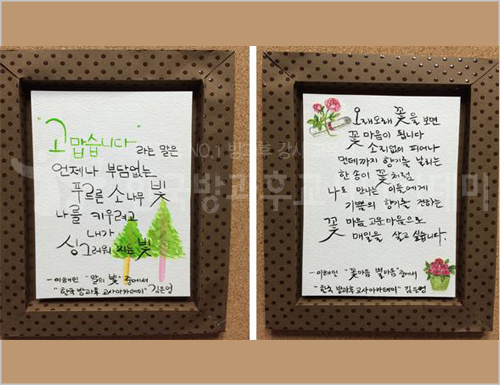 "고맙습니다" 라는 말은
언제나 부담없는
푸르른 소나무 빛
나를 키우려고
내가
싱그러워 지는 빛
-이해인 "말의 빛" 중에서
"한국 방과후 교사아카데미" 김은영
오래오래 꽃을 보면
꽃 마음이 됩니다
소리없이 피어나
먼데까지 향기를 날리는
한송이 꽃처럼
나도 만나는 이들에게
기쁨의 향기를 전하는
꽃 마음 고운마음으로
매일을 살고 싶습니다.
-이해인 "꽃마음 별마음" 중에서
"한국 방과후 교사아카데미" 김은영
NO.1 방과후 강사
한국방과후교사아카데미